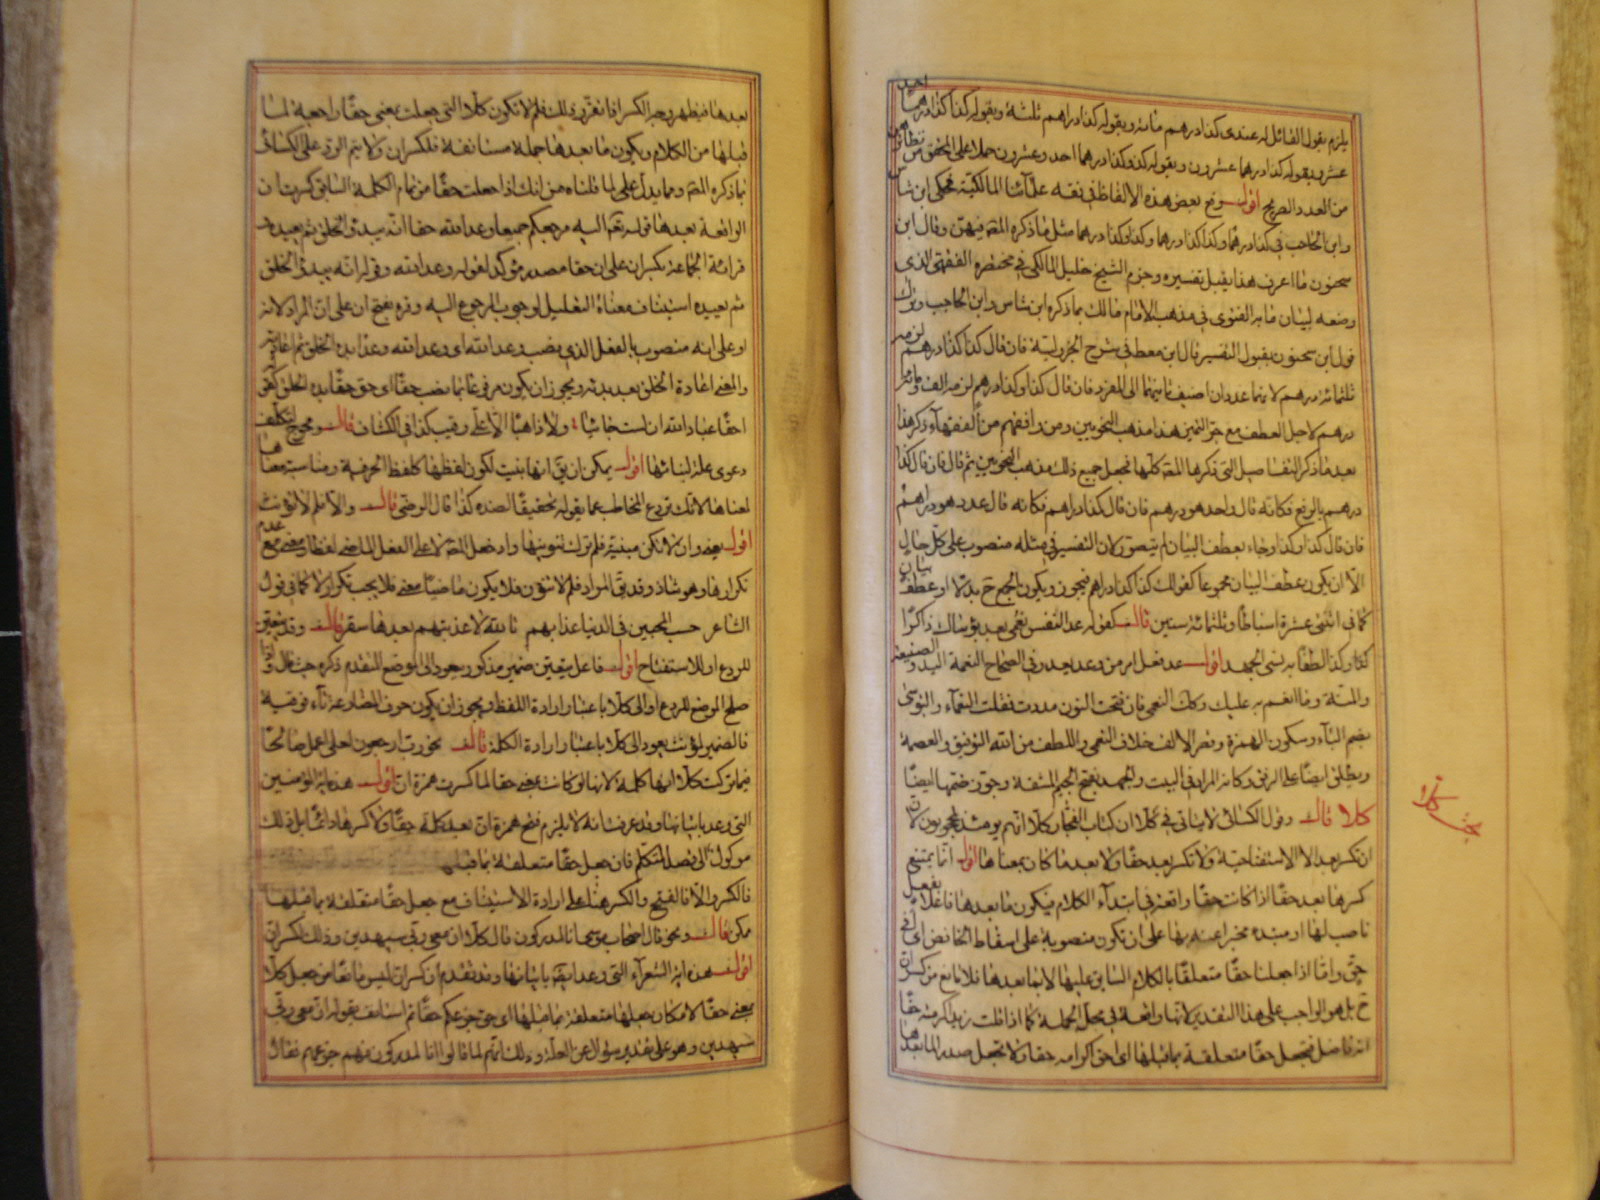 يلزم بقول القائل له عندى كذا درهم مائة وبقوله كذا دراهم ثلثة وبقوله كذا كذا درهما احد
عشر وبقوله كذا درهما عشرون وبقوله كذا وكذا درهما احد وعشرون حملا على المحقق من نظائرهن
من العدد الصريح اقول وقع بعض هذه الالفاظ فى فقه علمائنا المالكية فحكى ابن شاس
وابن الحاجب فى كذا درهما وكذا كذا درهما وكذا وكذا درهما مثل ما ذكره المص فيهن وقال ابن
سحنون ما اعرف هذا يقبل تفسيره وجزم الشيخ خليل المالكى فى مختصره الفقهى الذى
وضعه لبيان ما به الفتوى فى مذهب الامام مالك بما ذكره ابن شاس وابن الحاجب وترك
قول ابن سحنون بقبول التفسير قال ابن معط فى شرح الجزولية فان قال كذا كذا درهم لزمه
ثلثمائة درهم لانهما عددان اضيف ثانيهما الى المفرد فان قال كذا وكذا درهم لزمه الف ومائة
درهم لاجل العطف مع جر التميز هذا مذهب النحويين ومن وافقهم من الفقهاء ذكر هذا
بعد ما ذكر التفاصيل التى ذكرها المص كلها فجعل جميع ذلك مذهب النحويين ثم قال فان قال كذا
درهم بالرفع فكانه قال واحد هو درهم فان قال كذا دراهم فكانه قال عدد هو دراهم
فان قال كذا وكذا وجاء بعطف البيان لم يتصور لان التفسير فى مثله منصوب على كل حال
الا ان يكون عطف البيان مجموعا كقولك كذا كذا دراهم فيجوز ويكون الجمع ح بدلا او عطف بيان
كما فى اثنتى عشرة اسباطا وثلثمائة سنين قال كقوله عد النفس نعمى بعد بؤساك ذاكرا
كذا وكذا لطفا به نسى الجهد اقول عد فعل امر من وعد يعد وفى الصحاح النعمة اليد والصنيعة
والمنة وما انعم به عليك وكذلك النعمى فان فتحت النون مددت فقلت النعماء والبؤسى
بضم الباء وسكون الهمزة وقصر الالف خلاف النعمى واللطف من الله التوفيق والعصمة
ويطلق ايضا على الرفق وكانه المراد فى البيت والجهد بفتح الجيم المشقة وجوز ضمها ايضا
كلا قال وقول الكسائى لا يتاتى فى كلا ان كتاب الفجار كلا انهم يومئذ لمحجوبون لان
ان تكسر بعد الا الاستفتاحية ولا تكسر بعد حقا ولا بعد ما كان بمعناها اقول انما يمتنع
كسرها بعد حقا اذا كانت حقا واقعة فى ابتداء الكلام فيكون ما بعدها فاعلا بفعل
ناصب لها او مبتدء مخبرا عنه بها على ان تكون منصوبة على اسقاط الخافض اى فى
حق واما اذا جعلنا حقا متعلقا بالكلام السابق عليها لا بما بعدها فلا مانع من كسر ان
ح بل هو الواجب على هذا التقدير لانها واقعة فى محل الجملة كما اذا قلت زيد اكرمته حقا
انه فاضل فتجعل حقا متعلقة بما قبلها اى احق اكرامه حقا ولا تجعل صدرا لما بعدها
بعدها فيظهر وجه الكسر اذا تقرر ذلك فلم لا تكون كلا التى جعلت بمعنى حقا راجعة لما
قبلها من الكلام ويكون ما بعدها جملة مستانفة فتكسر ان ولا يتم الرد على الكسائى
بما ذكره المص ومما يدل على ما قلناه من انك اذا جعلت حقا من تمام الكلمة السابق كسرت ان
الواقعة بعدها قوله تعه اليه مرجعكم جميعا وعد الله حقا انه يبدؤ الخلق ثم يعيده
قرائة الجماعة بكسر ان على ان حقا مصدر مؤكد لقوله وعد الله وقوله انه يبدؤ الخلق
ثم يعيده استيناف معناه التعليل لوجوب المرجوع اليه وقرء بفتح ان على ان المراد لانه
او على انه منصوب بالفعل الذى نصب وعد الله اى وعد الله وعدا بدء الخلق ثم اعادته
والمعنى اعادة الخلق بعد بدئه ويجوز ان يكون مرفوعا بما نصب حقا اى حق حقا بدء الخلق كقوله
احقا عباد الله ان لست جائيا ولا ذاهبا الا على رقيب كذا فى الكشاف قال ومحوج لتكلف
دعوى علة لبنائها اقول يمكن ان يق انها بنيت لكون لفظها كلفظ الحرفية ومناسبة معناها
لمعناها لانك تردع المخاطب عما يقوله تحقيقا لضده كذا قال الرضى قال والا فلم لا نونت
اقول يعنى وان لم تكن مبنية فلم ترك تنوينها وادخل المص لا على الفعل الماضى لفظا ومعنى مع عدم
تكرارها وهو شاذ وقد يق المراد فلم لا تنون فلا يكون ماضيا معنى فلا يجب تكرار لا كما فى قول
الشاعر حسب المحبين فى الدنيا عذابهم تالله لا عذبتهم بعدها سقر قال وقد يتعين
للردع او للاستفتاح اقول فاعل يتعين ضمير مذكور يعود الى الموضع المتقدم ذكره حيث قال واذا
صلح الموضع للردع او الى كلا باعتبار ارادة اللفظ ويجوز ان يكون حرف المضارعة تاء فوقية
فالضمير لمؤنث يعود الى كلا باعتبار ارادة الكلمة قال نحو رب ارجعون لعلى اعمل صالحا
فيما تركت كلا انها كلمة لانها لو كانت بمعنى حقا لما كسرت همزة ان اقول هذه اية المؤمنين
التى وعد باتيانها وقد عرفت انه لا يلزم فتح همزة ان بعد كلمة حقا ولا كسرها دائما بل ذلك
موكول الى قصد المتكلم فان جعل حقا متعلقة بما قبلها
فالكسر والا فالفتح والكسر هنا على ارادة الاستيناف مع جعل حقا متعلقة بما قبلها
ممكن قال ونحو قال اصحاب موسى انا لمدركون قال كلا ان معى ربى سيهدين وذلك لكسر ان
اقول هذه اية الشعراء التى وعد ايضا باتيانها وقد تقدم ان كسر ان ليس مانعا من جعل كلا
بمعنى حقا لامكان جعلها متعلقة بما قبلها اى حق جزعكم حقا ثم استانف بقوله ان معى ربى
سيهدين وهو على تقدير سؤال عن العلة وذلك انهم لما قالوا انا لمدركون فهم جزعهم فقال